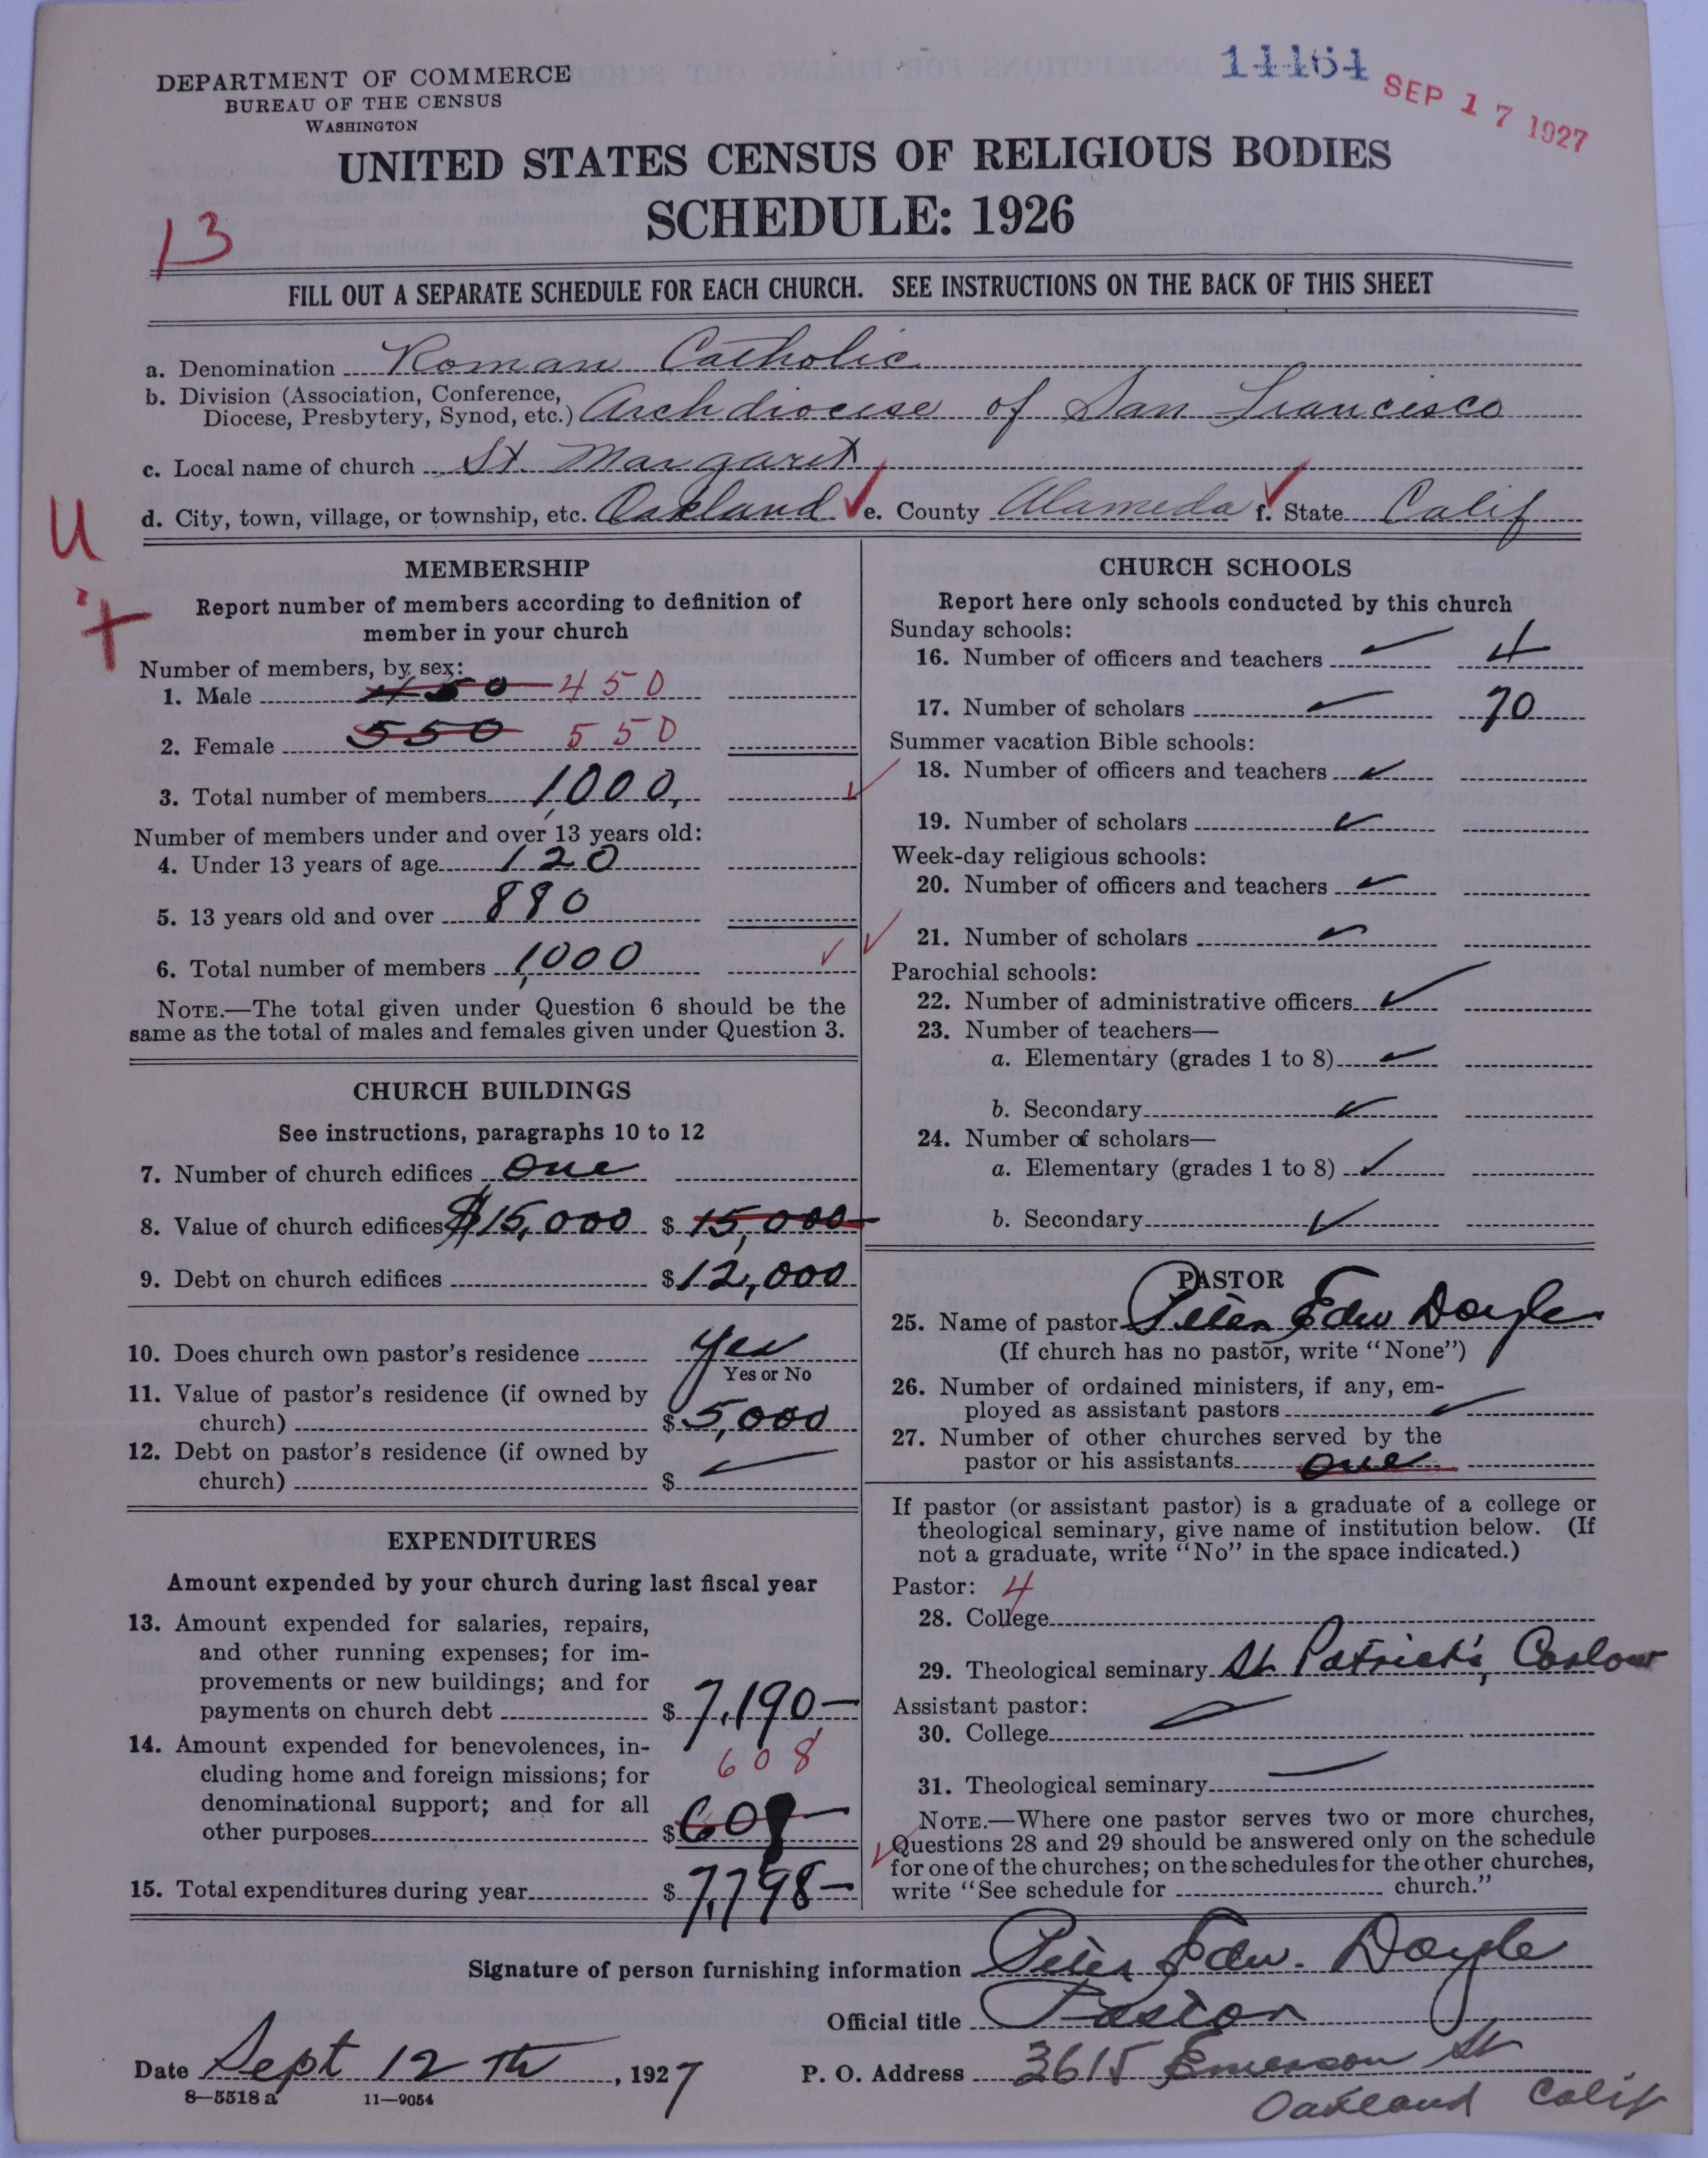 14464
SEP 17 1927
DEPARTMENT OF COMMERCE
BUREAU OF THE CENSUS
WASHINGTON
UNITED STATES CENSUS OF RELIGIOUS BODIES
SCHEDULE: 1926
13
FILL OUT A SEPARATE SCHEDULE FOR EACH CHURCH. SEE INSTRUCTIONS ON THE BACK OF THIS SHEET
a. Denomination Roman Catholic
b. Division (Association, Conference,
Diocese, Presbytery, Synod, etc.) Archdiocese of San Francisco
c. Local name of church St. Margaret
d. City, town, village, or township, etc. Oakland ✓ e. County Alameda ✓ f. State Calif
U
+
MEMBERSHIP
Report number of members according to definition of
member in your church
Number of members, by sex:
1. Male 450 450
2. Female 550 550
3. Total number of members 1,000, ✓
Number of members under and over 13 years old:
4. Under 13 years of age 120
5. 13 years old and over 880
6. Total number of members 1,000 ✓ ✓
NOTE.—The total given under Question 6 should be the
same as the total of males and females given under Question 3.
CHURCH BUILDINGS
See instructions, paragraphs 10 to 12
7. Number of church edifices one
8. Value of church edifices $15,000 $ 15,000
9. Debt on church edifices $ 12,000
10. Does church own pastor's residence Yes
Yes or No
11. Value of pastor's residence (if owned by
church) $ 5,000
12. Debt on pastor's residence (if owned by
church) $ ✓
EXPENDITURES
Amount expended by your church during last fiscal year
13. Amount expended for salaries, repairs,
and other running expenses; for im-
provements or new buildings; and for
payments on church debt $ 7,190—
14. Amount expended for benevolences, in-
608
cluding home and foreign missions; for
denominational support; and for all
other purposes $ 608—
15. Total expenditures during year $ 7,798—
CHURCH SCHOOLS
Report here only schools conducted by this church
Sunday schools:
16. Number of officers and teachers ✓ 4
17. Number of scholars ✓ 70
Summer vacation Bible schools:
18. Number of officers and teachers ✓
19. Number of scholars ✓
Week-day religious schools:
20. Number of officers and teachers ✓
21. Number of scholars ✓
Parochial schools:
22. Number of administrative officers ✓
23. Number of teachers—
a. Elementary (grades 1 to 8) ✓
b. Secondary ✓
24. Number of scholars—
a. Elementary (grades 1 to 8) ✓
b. Secondary ✓
PASTOR
25. Name of pastor Peter Edw Doyle
(If church has no pastor, write "None")
26. Number of ordained ministers, if any, em-
ployed as assistant pastors ✓
27. Number of other churches served by the
pastor or his assistants one
If pastor (or assistant pastor) is a graduate of a college or
theological seminary, give name of institution below. (If
not a graduate, write "No" in the space indicated.)
Pastor: 4
28. College
29. Theological seminary St Patrick's, Carlow
Assistant pastor:
30. College
31. Theological seminary
NOTE.—Where one pastor serves two or more churches,
✓ Questions 28 and 29 should be answered only on the schedule
for one of the churches; on the schedules for the other churches,
write "See schedule for church."
Signature of person furnishing information Peter Edw. Doyle
Official title Pastor
Date Sept 12 Th, 1927 P. O. Address 3615 Emerson St
Oakland Calif
8—5518 a 11—9054